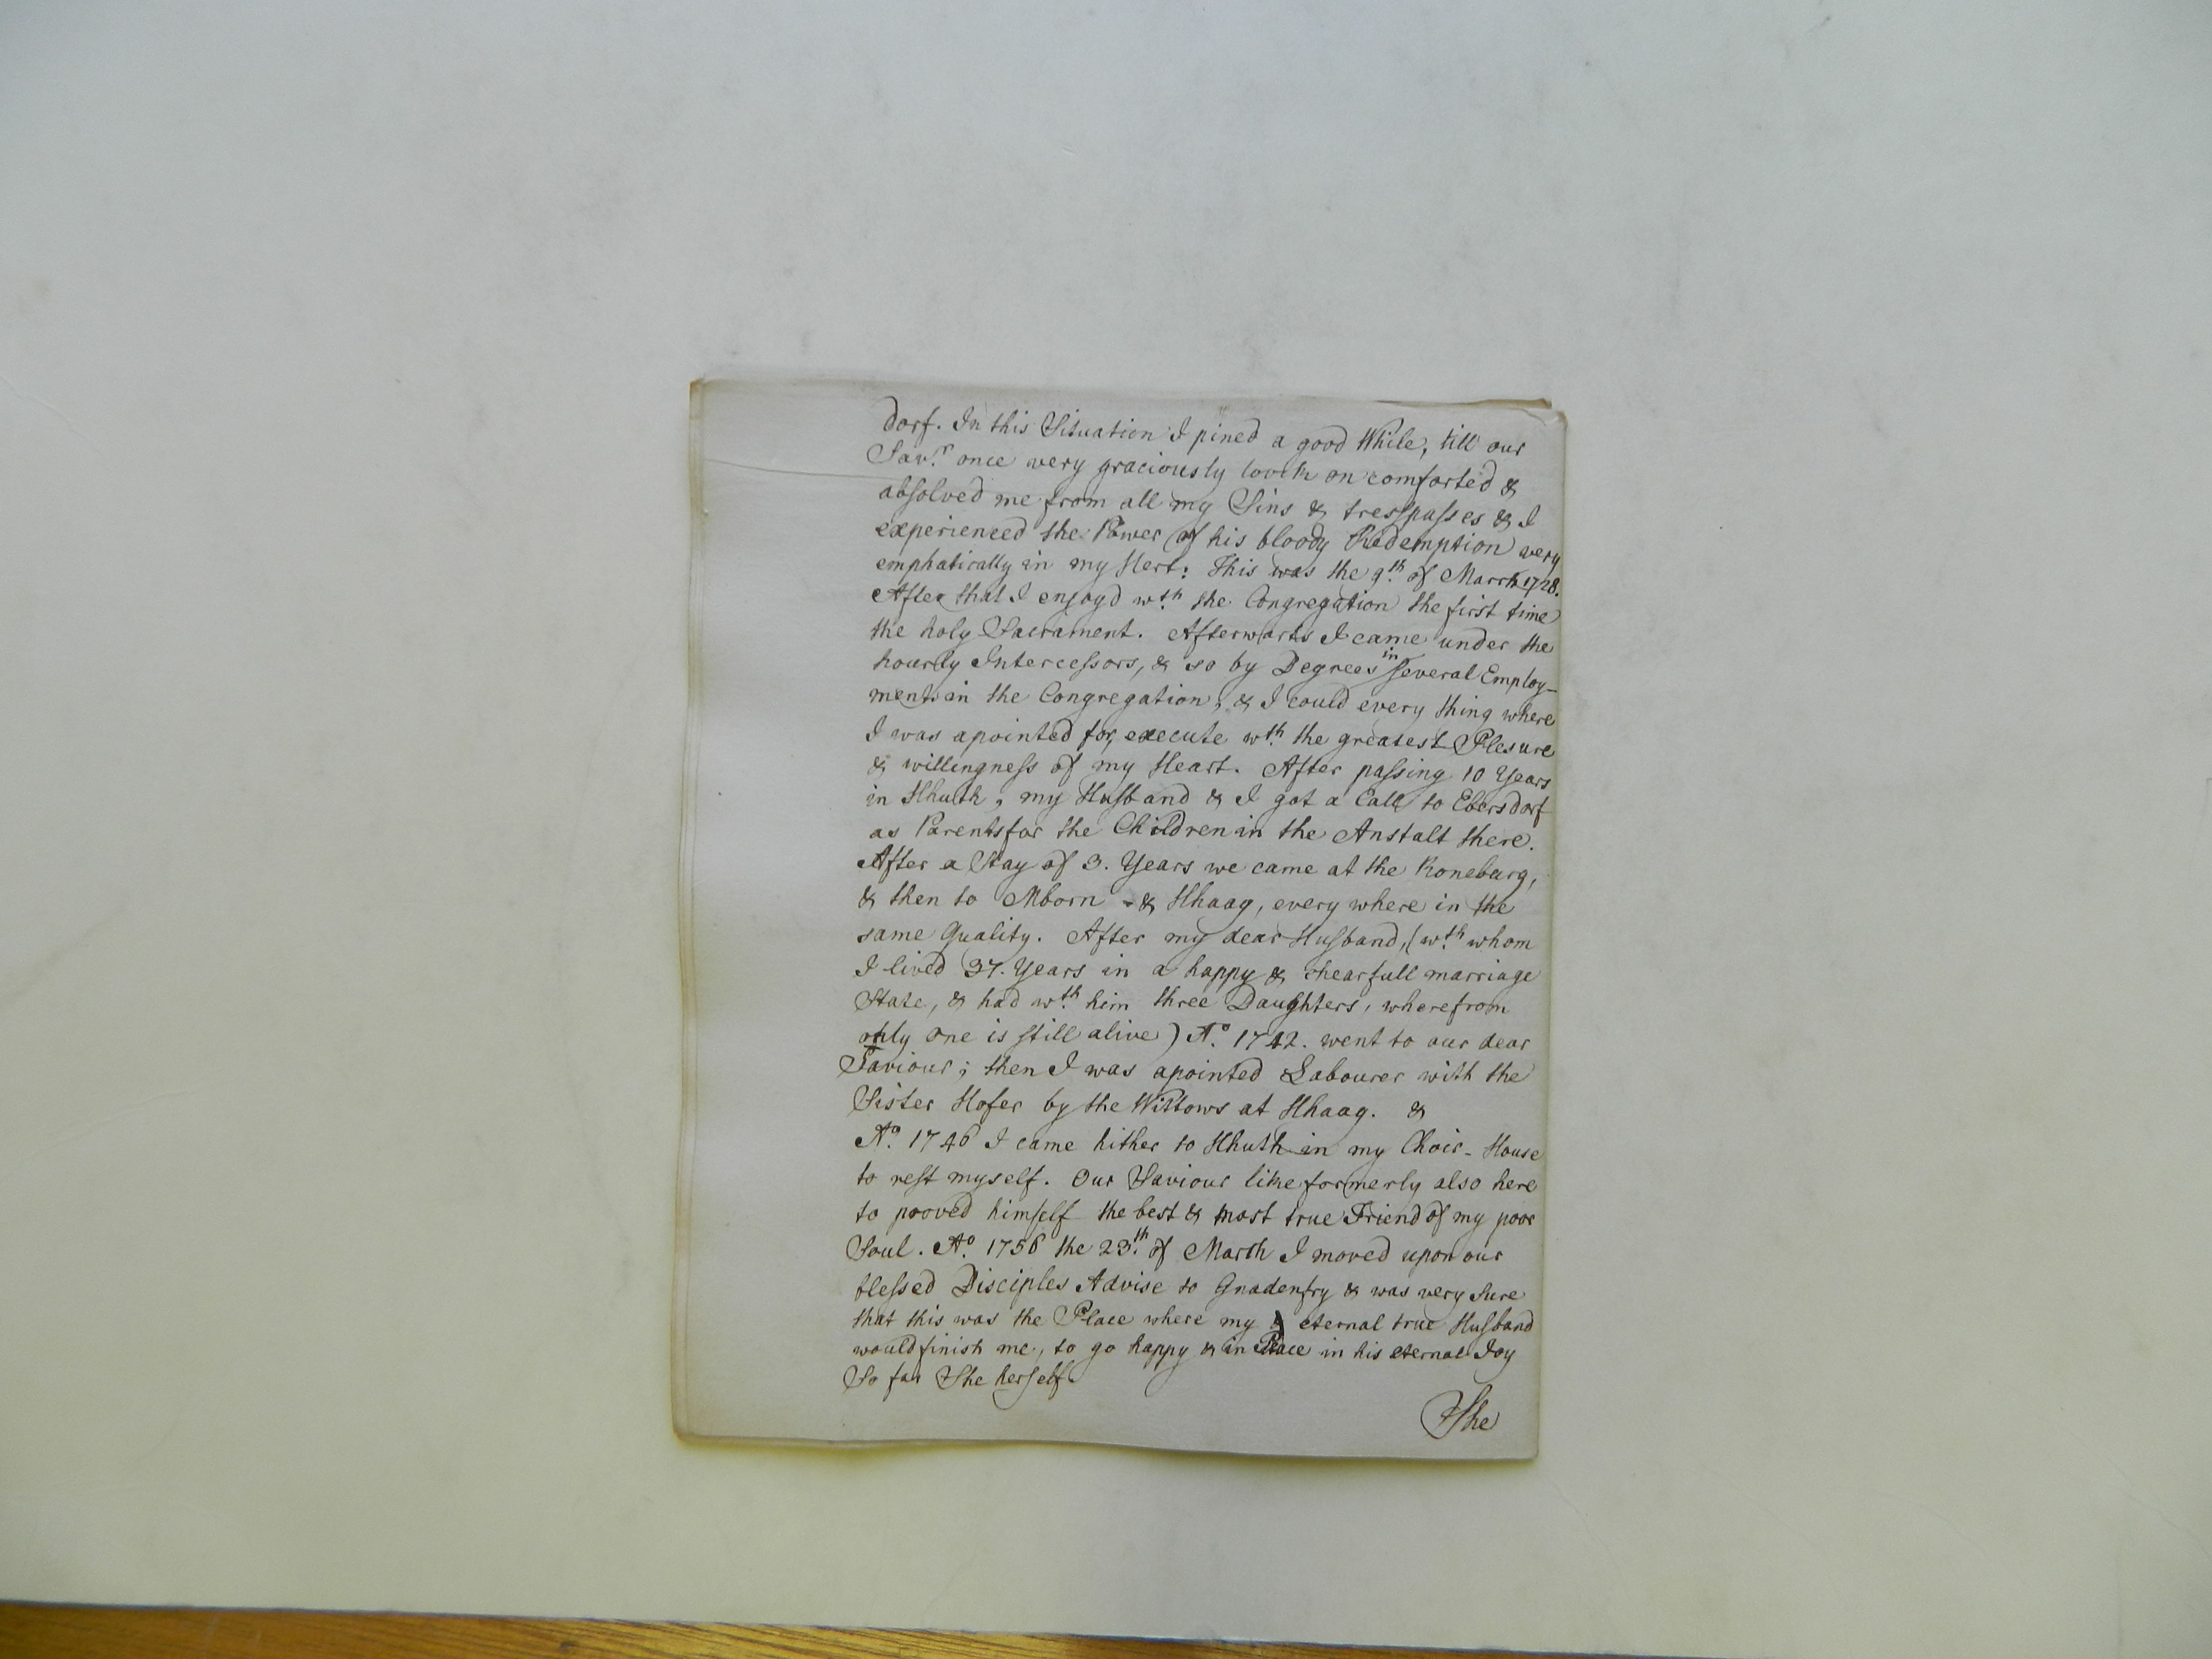 dorf. In this Situation I pined a good While, till our
Sav.r once very graciously look on comforted &
absolved me from all my Sins & tresspasses & I
experienced the Power of his bloody Redemption very
emphatically in my Hert: This was the 9.th of March 1728.
After that I enjoyd w.th the Congregation the first time
the holy Sacrament. Afterwarts I came under the
hourly Intercessors, & so by Degrees in several Employ-
ments in the Congregation, & I could every thing where
I was apointed for, execute w.th the greatest Plesure
& willingness of my Heart. After passing 10 Years
in Hhuth, my Husband & I got a Call to Ebersdorf
as Parents for the Children in the Anstalt there.
After a Stay of 3. Years we came at the Roneburg,
& then to Mborn & Hhaag, every where in the
same Quality. After my dear Husband, (w.th whom
I lived 37. Years in a happy & chearfull marriage
State, & had w.th him three Daughters, wherefrom
only one is still alive) A.o 1742. went to our dear
Saviour; then I was apointed Labourer with the
Sister Hofer by the Wittows at Hhaag. &
A.o 1746 I came hither to Hhuth in my Choir-House
to rest myself. Our Saviour like formerly also here
to prooved himself the best & most true Friend of my poor
Soul. A.o 1756 the 23.th of March I moved upon our
blessed Disciples Advise to Gnadenfry & was very Sure
that this was the Place where my eternal true Husband
would finish me, to go happy & in Peace in his eternal Joy
So far She herself.
She